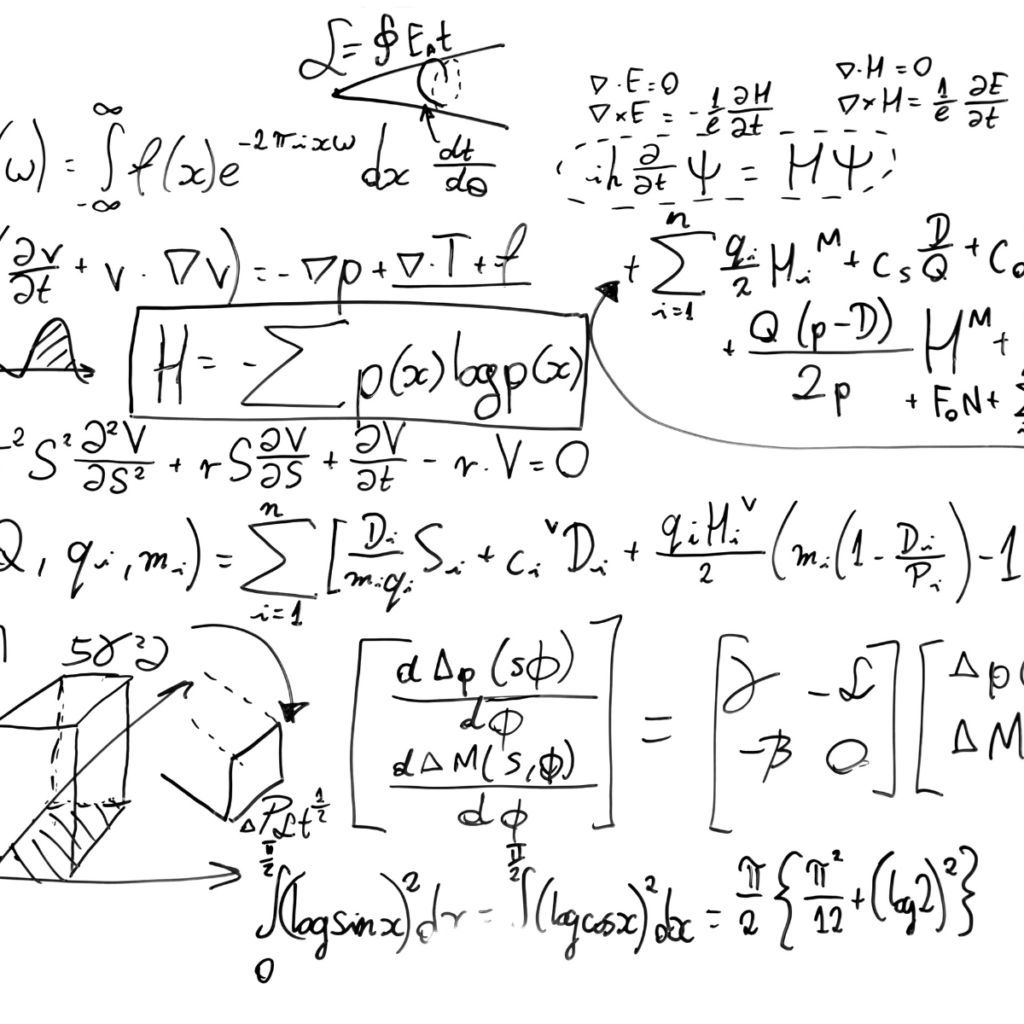 ℒ = ∮ E₀t
∇·E=0 ∇·H=0
∇×E = -1/e ∂H/∂t ∇×H = 1/e ∂E/∂t
ω) = ∫_{-∞}^{∞} f(x)e^{-2πixω} dx dt/dθ
ih ∂/∂t Ψ = HΨ
(∂v/∂t + v·∇v) = -∇p + ∇·T + f
+ Σ_{i=1}^{n} q_i/2 H_i^M + C_s D/Q + C₀
+ Q(p-D)/2p H^M +
+ F₀N +
H = -Σ p(x) log p(x)
² S² ∂²V/∂S² + rS ∂V/∂S + ∂V/∂t - r·V = 0
Q, q_i, m_i) = Σ_{i=1}^{n} [D_i/(m_i q_i) S_i + c_i^v D_i + q_i H_i^v/2 (m_i(1 - D_i/P_i) - 1
[d Δp(sϕ)/dϕ
d ΔM(s,ϕ)/dϕ] = [γ -ℒ
-β 0] [Δp(
ΔM
∫_0^{π/2} (log sin x)² dx = ∫^{π/2} (log cos x)² dx = π/2 {π²/12 + (log 2)²}